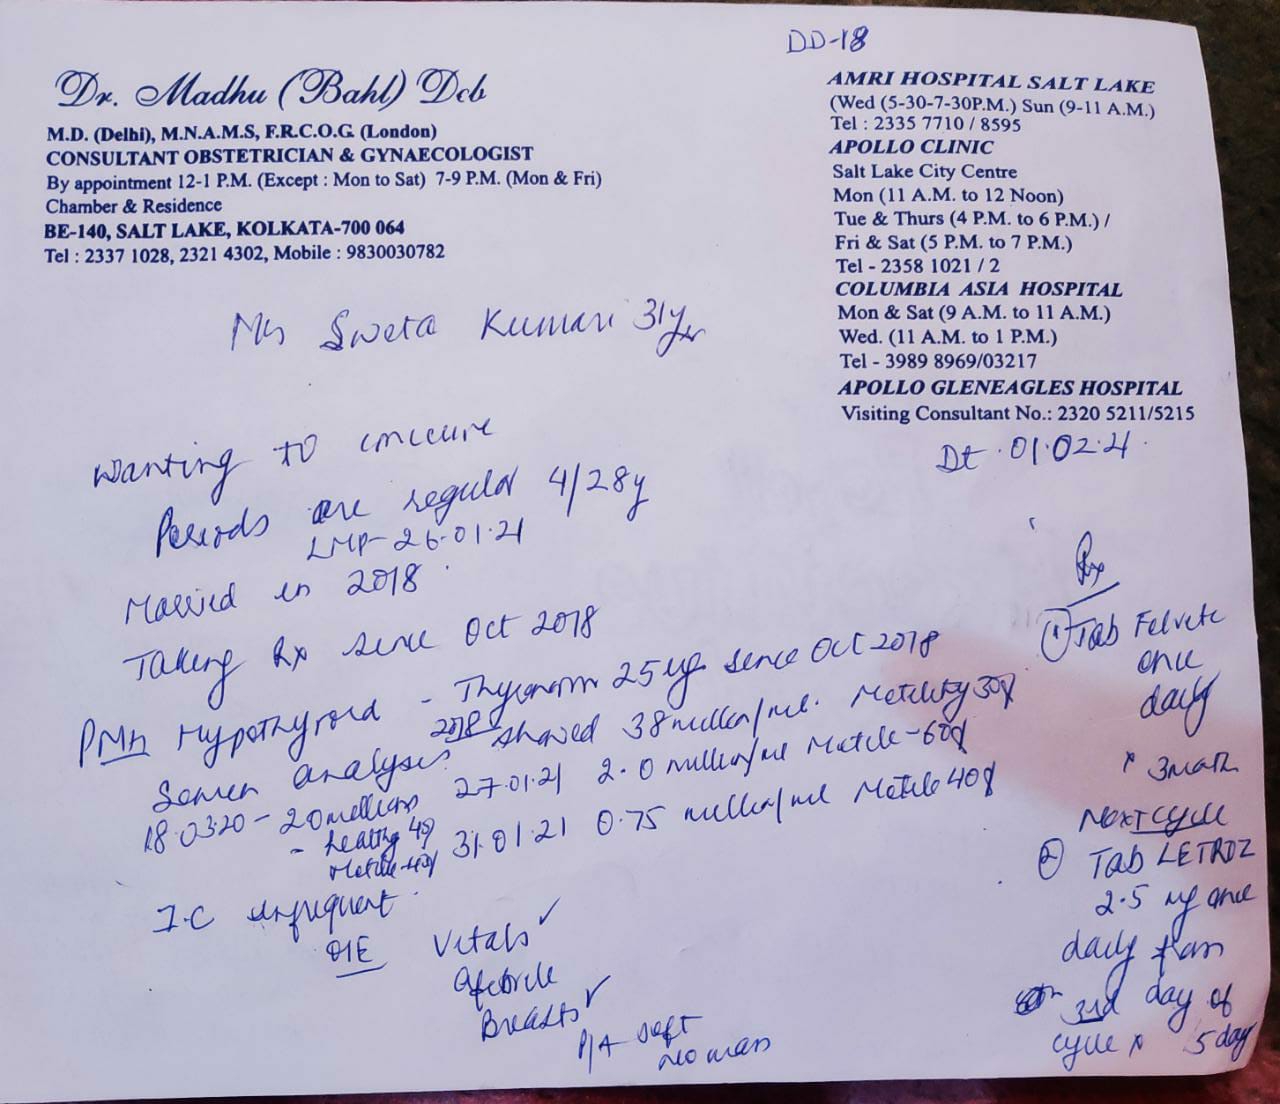 DD-18
Dr. Madhu (Bahl) Deb
M.D. (Delhi), M.N.A.M.S, F.R.C.O.G. (London)
CONSULTANT OBSTETRICIAN & GYNAECOLOGIST
By appointment 12-1 P.M. (Except : Mon to Sat) 7-9 P.M. (Mon & Fri)
Chamber & Residence
BE-140, SALT LAKE, KOLKATA-700 064
Tel : 2337 1028, 2321 4302, Mobile : 9830030782
AMRI HOSPITAL SALT LAKE
(Wed (5-30-7-30P.M.) Sun (9-11 A.M.)
Tel : 2335 7710 / 8595
APOLLO CLINIC
Salt Lake City Centre
Mon (11 A.M. to 12 Noon)
Tue & Thurs (4 P.M. to 6 P.M.) /
Fri & Sat (5 P.M. to 7 P.M.)
Tel - 2358 1021 / 2
COLUMBIA ASIA HOSPITAL
Mon & Sat (9 A.M. to 11 A.M.)
Wed. (11 A.M. to 1 P.M.)
Tel - 3989 8969/03217
APOLLO GLENEAGLES HOSPITAL
Visiting Consultant No.: 2320 5211/5215
Dt. 01.02.21
Mrs Sweta Kumari 31yr
Wanting to conceive
Periods are regular 4/28y
LMP- 26.01.21
Married in 2018
Taking Rx since Oct 2018
PMH Hypothyroid - Thyronorm 25 ug since Oct 2018
Semen analysis 2018 showed 38 million/ml. Motility 30%
18.03.20 - 20 millions
- healthy 4%
Motile-40%
27.01.21 2.0 million/ml Motile-60%
31.01.21 0.75 million/ml Motile 40%
I.C infrequent
O/E Vitals ✓
afebrile
Breasts ✓
P/A soft
no mass
Rx
(1) Tab
once
daily
x 3 month
Next cycle
(2) Tab LETROZ
2.5 mg once
daily from
3rd day of
cycle x 5 day